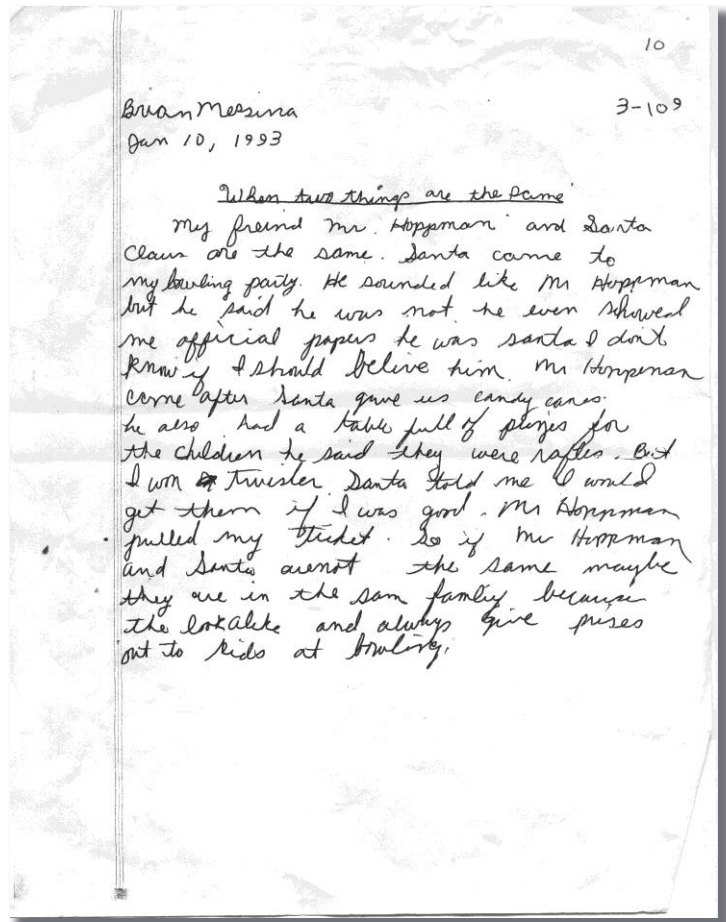 10
Brian Messina 3-109
Jan 10, 1993
When two things are the same
My freind Mr. Hoppman and Santa
Claus are the same. Santa came to
my bowling party. He sounded like Mr Hoppman
but he said he was not. he even showed
me official papers he was santa I don't
know if I should belive him. Mr Hoppman
come after Santa gave us candy canes.
he also had a table full of prizes for
the children he said they were rafles. But
I won Twister. Santa told me I would
get them if I was good. Mr Hoppman
pulled my ticket. So if Mr Hoppman
and Santa arenot the same maybe
they are in the sam famliy because
the lookalike and always give prises
out to kids at bowling.